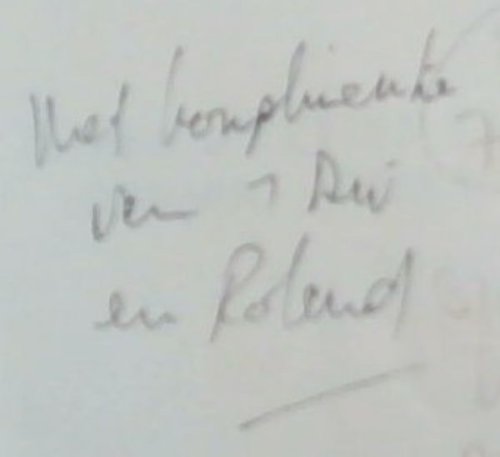 Met komplimente
van
en Roland